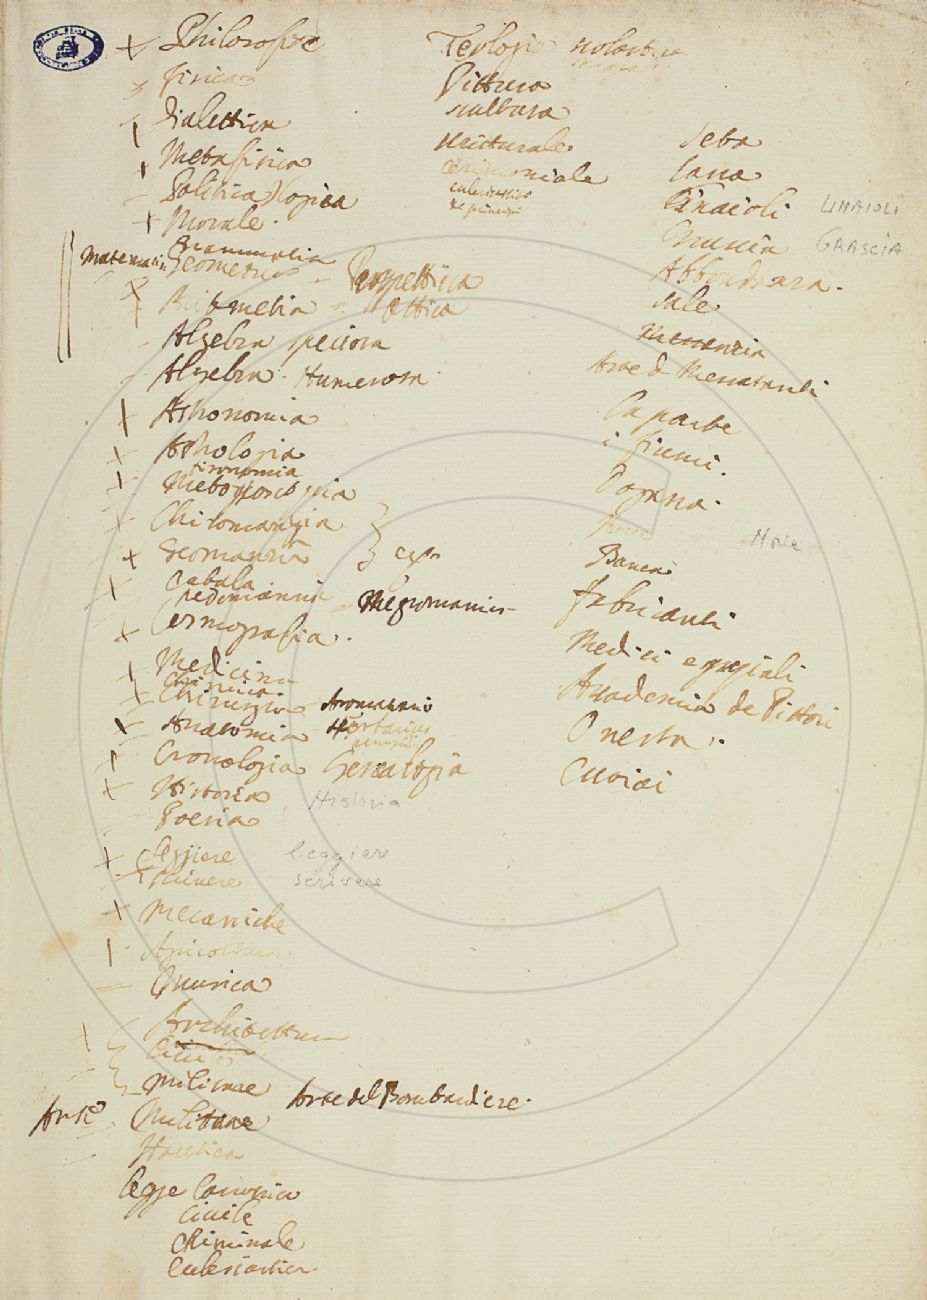 Philosofie
fisica
Dialettica
Metafisica
Politica Logica
Morale.
Grammatica
Matematic
Geometria
Prospettica
Aritmetica
Ottica
Algebra speciosa
Algebra. Numerosa.
Astronomia
Astrologia
fisonomia
Metoposcopia
Chiromanzia
Geomanzia
Cabala
Negromanzia
Cosmografia.
Medicina
Chimica
Chirurgia
Aromatario
Anatomia
Cronologia
Genealogia
Historia
Poesia
leggiere
leggiere
scrivere
scrivere
Mecaniche
Agricoltura
Musica
Architettura
Civile
Militare
Arte del Bombardiere.
Arte
Militare
Nautica
legge Canonica
Civile
Criminale
Eclesiastica
Teologia scolastica
morale
Pittura
scultura
scritturale
Cerimoniale
eclesiastico
de principi
Seta
lana
Linaioli
LINAIOLI
Grascia
GRASCIA
Abbondanza.
sale
Mercanzia
Arte d Mercatanti
La parte
i fiumi.
Dogana.
Nove
Banchi
fabricanti
Medici e speziali
Academia de Pittori
Onesta.
Cuoiai